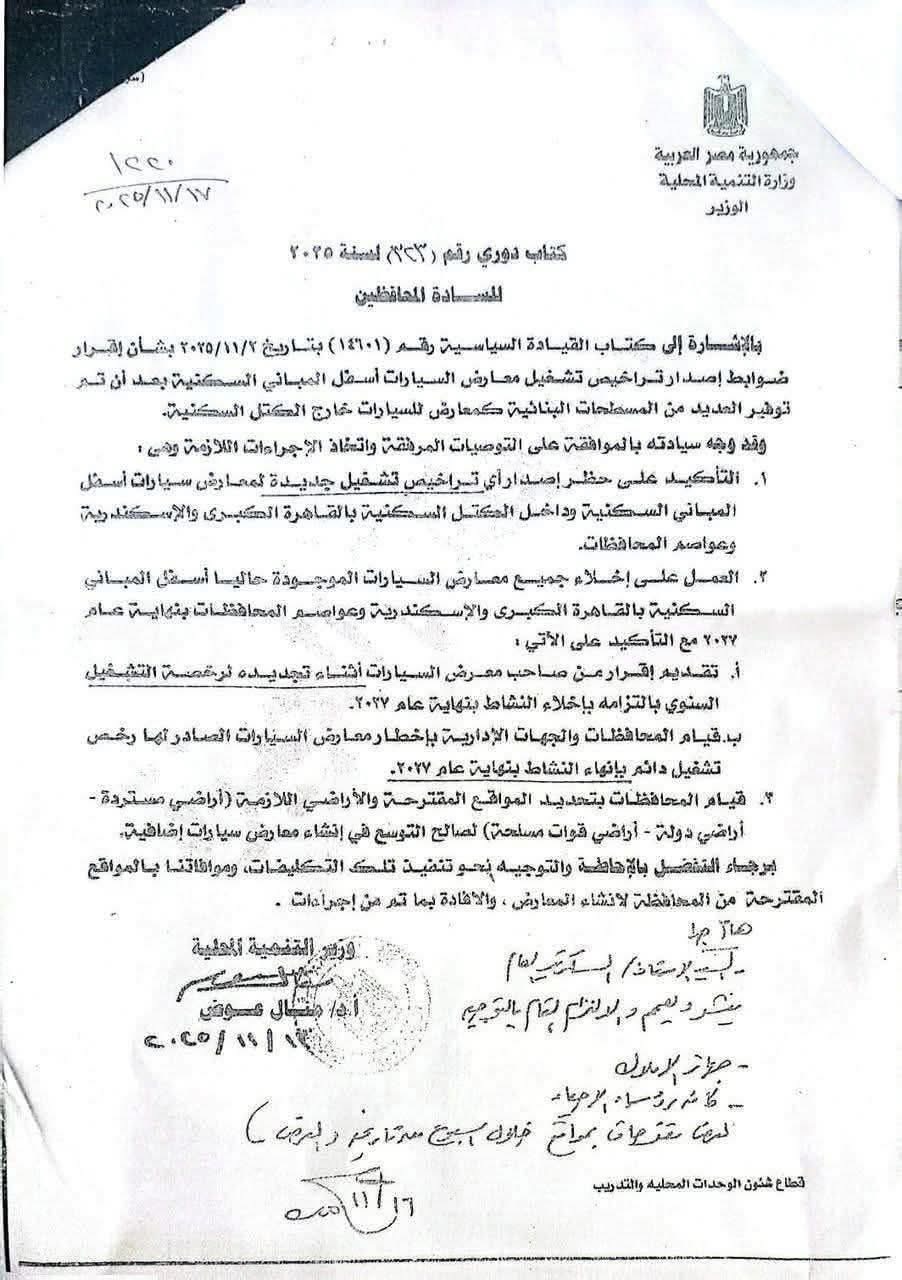 جمهورية مصر العربية
وزارة التنمية المحلية
الوزير
١٢٢٠
٢٠٢٥/١١/١٧
كتاب دوري رقم (٣٢٣) لسنة ٢٠٢٥
للسادة المحافظين
بالإشارة إلى كتاب القيادة السياسية رقم (١٤٦٠١) بتاريخ ٢٠٢٥/١١/٢ بشأن إقرار
ضوابط إصدار تراخيص تشغيل معارض السيارات أسفل المباني السكنية بعد أن تم
توفير العديد من المسطحات البنائية كمعارض للسيارات خارج الكتل السكنية.
وقد وجه سيادته بالموافقة على التوصيات المرفقة واتخاذ الإجراءات اللازمة وهي :
١. التأكيد على حظر إصدار أي تراخيص تشغيل جديدة لمعارض سيارات أسفل
المباني السكنية وداخل الكتل السكنية بالقاهرة الكبرى والإسكندرية
وعواصم المحافظات.
٢. العمل على إخلاء جميع معارض السيارات الموجودة حاليا أسفل المباني
السكنية بالقاهرة الكبرى والإسكندرية وعواصم المحافظات بنهاية عام
٢٠٢٧ مع التأكيد على الآتي :
أ. تقديم إقرار من صاحب معرض السيارات أثناء تجديده لرخصة التشغيل
السنوي بالتزامه بإخلاء النشاط بنهاية عام ٢٠٢٧.
ب. قيام المحافظات والجهات الإدارية بإخطار معارض السيارات الصادر لها رخص
تشغيل دائم بإنهاء النشاط بنهاية عام ٢٠٢٧.
٣. قيام المحافظات بتحديد المواقع المقترحة والأراضي اللازمة (أراضي مستردة -
أراضي دولة - أراضي قوات مسلحة) لصالح التوسع في إنشاء معارض سيارات إضافية.
برجاء التفضل بالإحاطة والتوجيه نحو تنفيذ تلك التكليفات، وموافاتنا بالمواقع
المقترحة من المحافظة لانشاء المعارض ، والافادة بما تم من إجراءات .
وزير التنمية المحلية
أ.د/ منال عوض
٢٠٢٥/١١/١٢
هام جدا
- السيد الاستاذ/ السكرتير العام
ينشر ويعمم والالتزام التام بالتوجيه
- جهاز الاملاك
- كافة رؤساء الاحياء
خلال اسبوع من تاريخه والعرض
١١/١٦
قطاع شئون الوحدات المحليه والتدريب